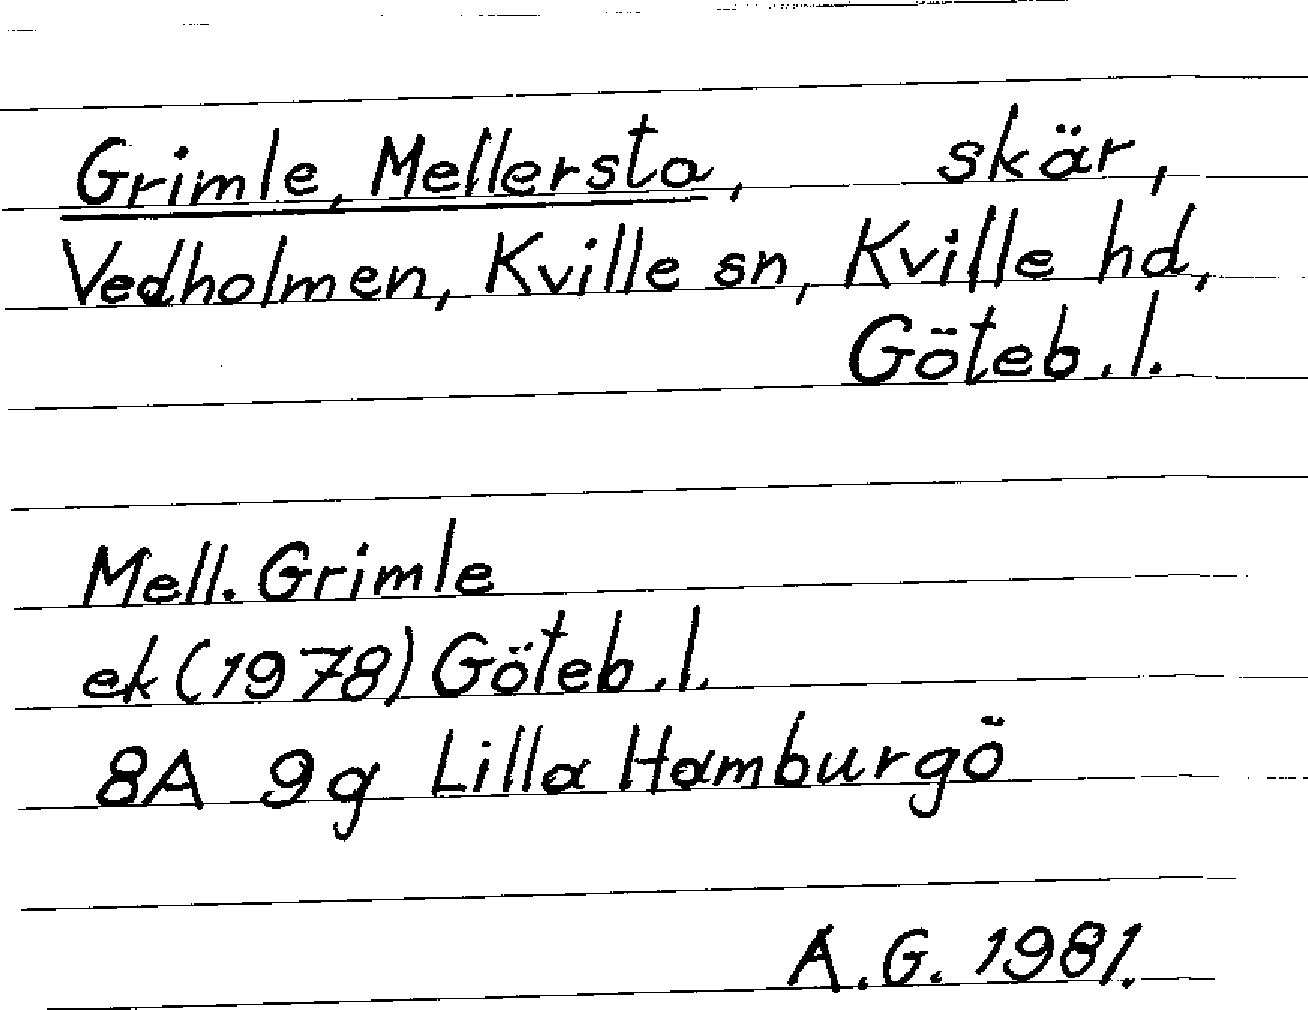 Grimle, Mellersta, skär,
Vedholmen, Kville sn, Kville hd,
Göteb. l.
Mell. Grimle
ek (1978) Göteb. l.
8A 9g Lilla Hamburgö
A. G. 1981.